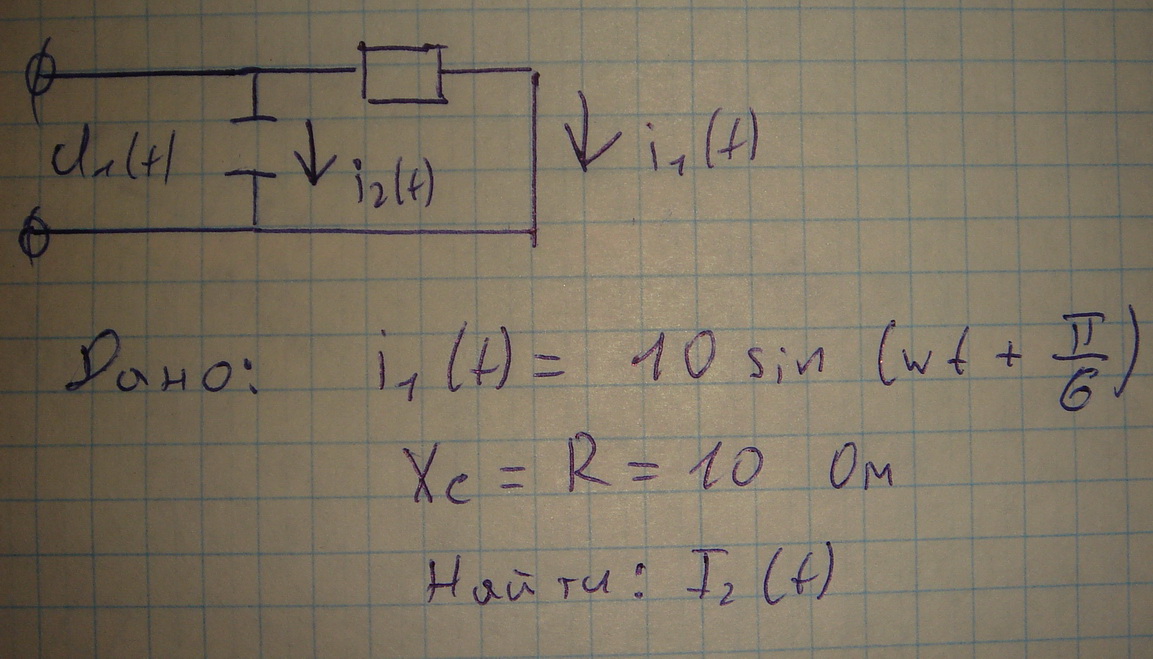 u₁(t)
i₂(t)
i₁(t)
Дано: i₁(t) = 10 sin (wt + π/6)
Xc = R = 10 Ом
Найти: I₂(t)